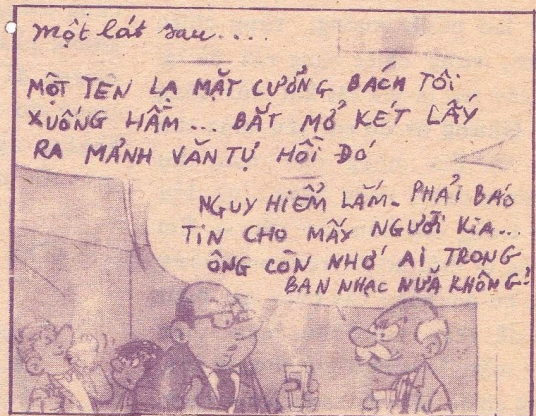 một lát sau....
MỘT TÊN LẠ MẶT CƯỠNG BÁCH TÔI
XUỐNG HẦM... BẮT MỞ KÉT LẤY
RA MẢNH VĂN TỰ HỒI ĐÓ
NGUY HIỂM LẮM. PHẢI BÁO
TIN CHO MẤY NGƯỜI KIA...
ÔNG CÒN NHỚ AI TRONG
BAN NHẠC NỮA KHÔNG?